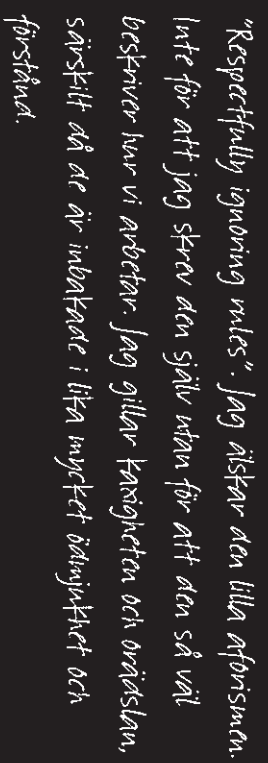 "Respectfully ignoring rules". Jag älskar den lilla aforismen.
Inte för att jag skrev den själv utan för att den så väl
beskriver hur vi arbetar. Jag gillar kaxigheten och orädslan,
särskilt då de är inbakade i lika mycket ödmjukhet och
förstånd.